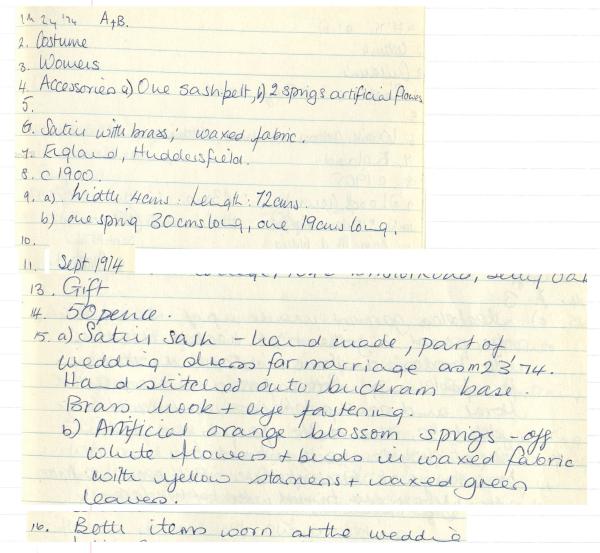 1. M 24 '74 A+B.
2. Costume
3. Womens
4. Accessories a) One sash-belt, b) 2 sprigs artificial flowers
5.
6. Satin with brass; waxed fabric.
7. England, Huddersfield.
8. c 1900.
9. a) Width 4cms: Length: 72cms.
b) one sprig 30cms long, one 19cms long.
10.
11. Sept 1974
13. Gift
14. 50 pence.
15. a) Satin sash - hand made, part of
wedding dress for marriage as m23'74.
Hand stitched onto buckram base.
Brass hook + eye fastening.
b) Artificial orange blossom sprigs - off
white flowers + buds in waxed fabric
with yellow stamens + waxed green
leaves.
16. Both items worn at the wedding